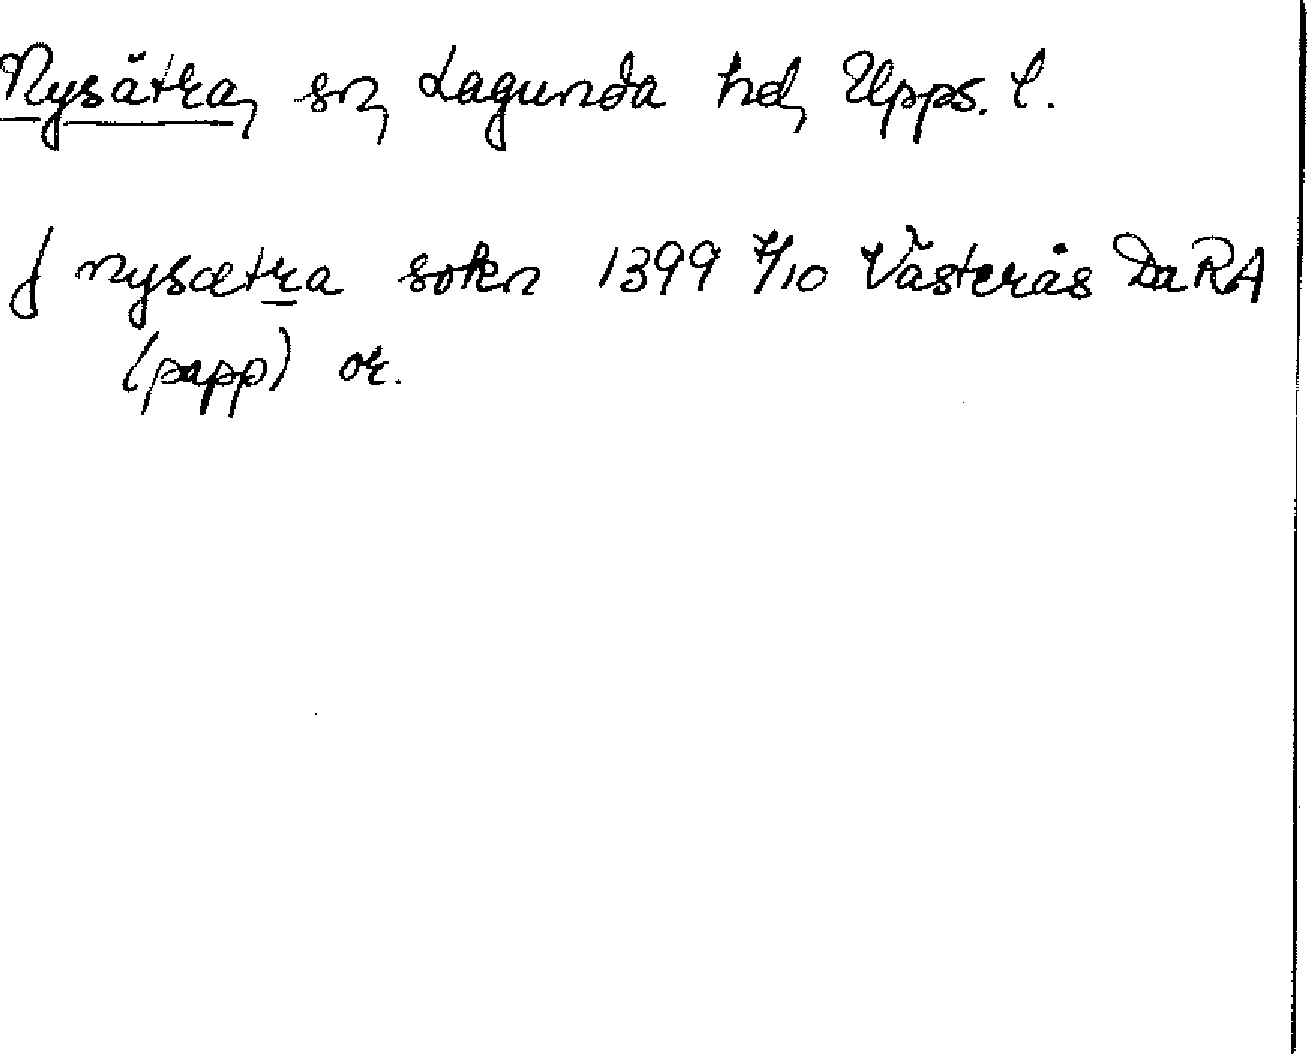 Nysätra, sn, Lagunda hd, Upps. l.
J nysætra sokn 1399 7/10 Västerås DaRA
(papp) or.